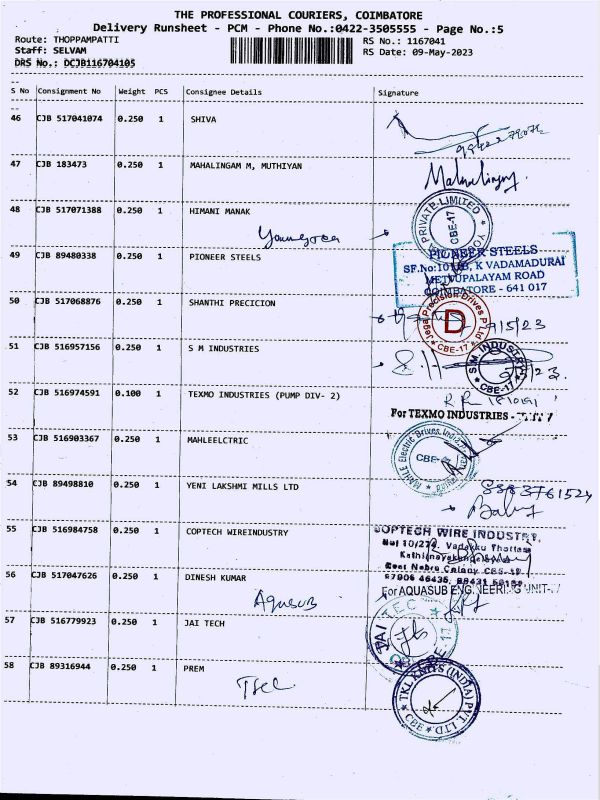 THE PROFESSIONAL COURIERS, COIMBATORE
Delivery Runsheet - PCM - Phone No.:0422-3505555 - Page No.:5
Route: THOPPAMPATTI RS No.: 1167041
Staff: SELVAM RS Date: 09-May-2023
DRS No.: DCJB116704105
S No Consignment No Weight PCS Consignee Details Signature
46 CJB 517041074 0.250 1 SHIVA
47 CJB 183473 0.250 1 MAHALINGAM M, MUTHIYAN
Mahalingam
48 CJB 517071388 0.250 1 HIMANI MANAK
A PRIVATE LIMITED
CBE-17
49 CJB 89480338 0.250 1 PIONEER STEELS
PIONEER STEELS
K VADAMADURAI
METTUPALAYAM ROAD
COIMBATORE - 641 017
50 CJB 517068876 0.250 1 SHANTHI PRECICION
Jaga Precision Drives Pvt Ltd
D
CBE-17
9/5/23
51 CJB 516957156 0.250 1 S M INDUSTRIES
S.M. INDUSTRY
CBE-17
52 CJB 516974591 0.100 1 TEXMO INDUSTRIES (PUMP DIV- 2)
For TEXMO INDUSTRIES -
53 CJB 516903367 0.250 1 MAHLEELCTRIC
MAHLE Electric Drives India
CBE-17
54 CJB 89498810 0.250 1 YENI LAKSHMI MILLS LTD
Baby
55 CJB 516984758 0.250 1 COPTECH WIREINDUSTRY
COPTECH WIRE INDUSTRY,
Vadakku Thottam
East Nehru Colony CBE-17
56 CJB 517047626 0.250 1 DINESH KUMAR
Aquasub
For AQUASUB ENGINEERING UNIT-
57 CJB 516779923 0.250 1 JAI TECH
JAI TEC
CBE-17
58 CJB 89316944 0.250 1 PREM
TKL KNITS (INDIA) PVT. LTD
CBE